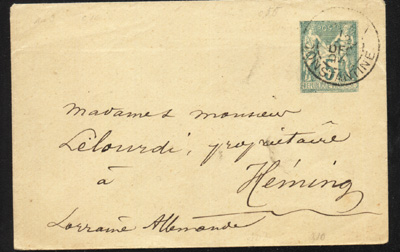 CONSTANTINE
Madames monsieur
Lelourdi, propriétaire
à
Héming
Lorraine Allemande